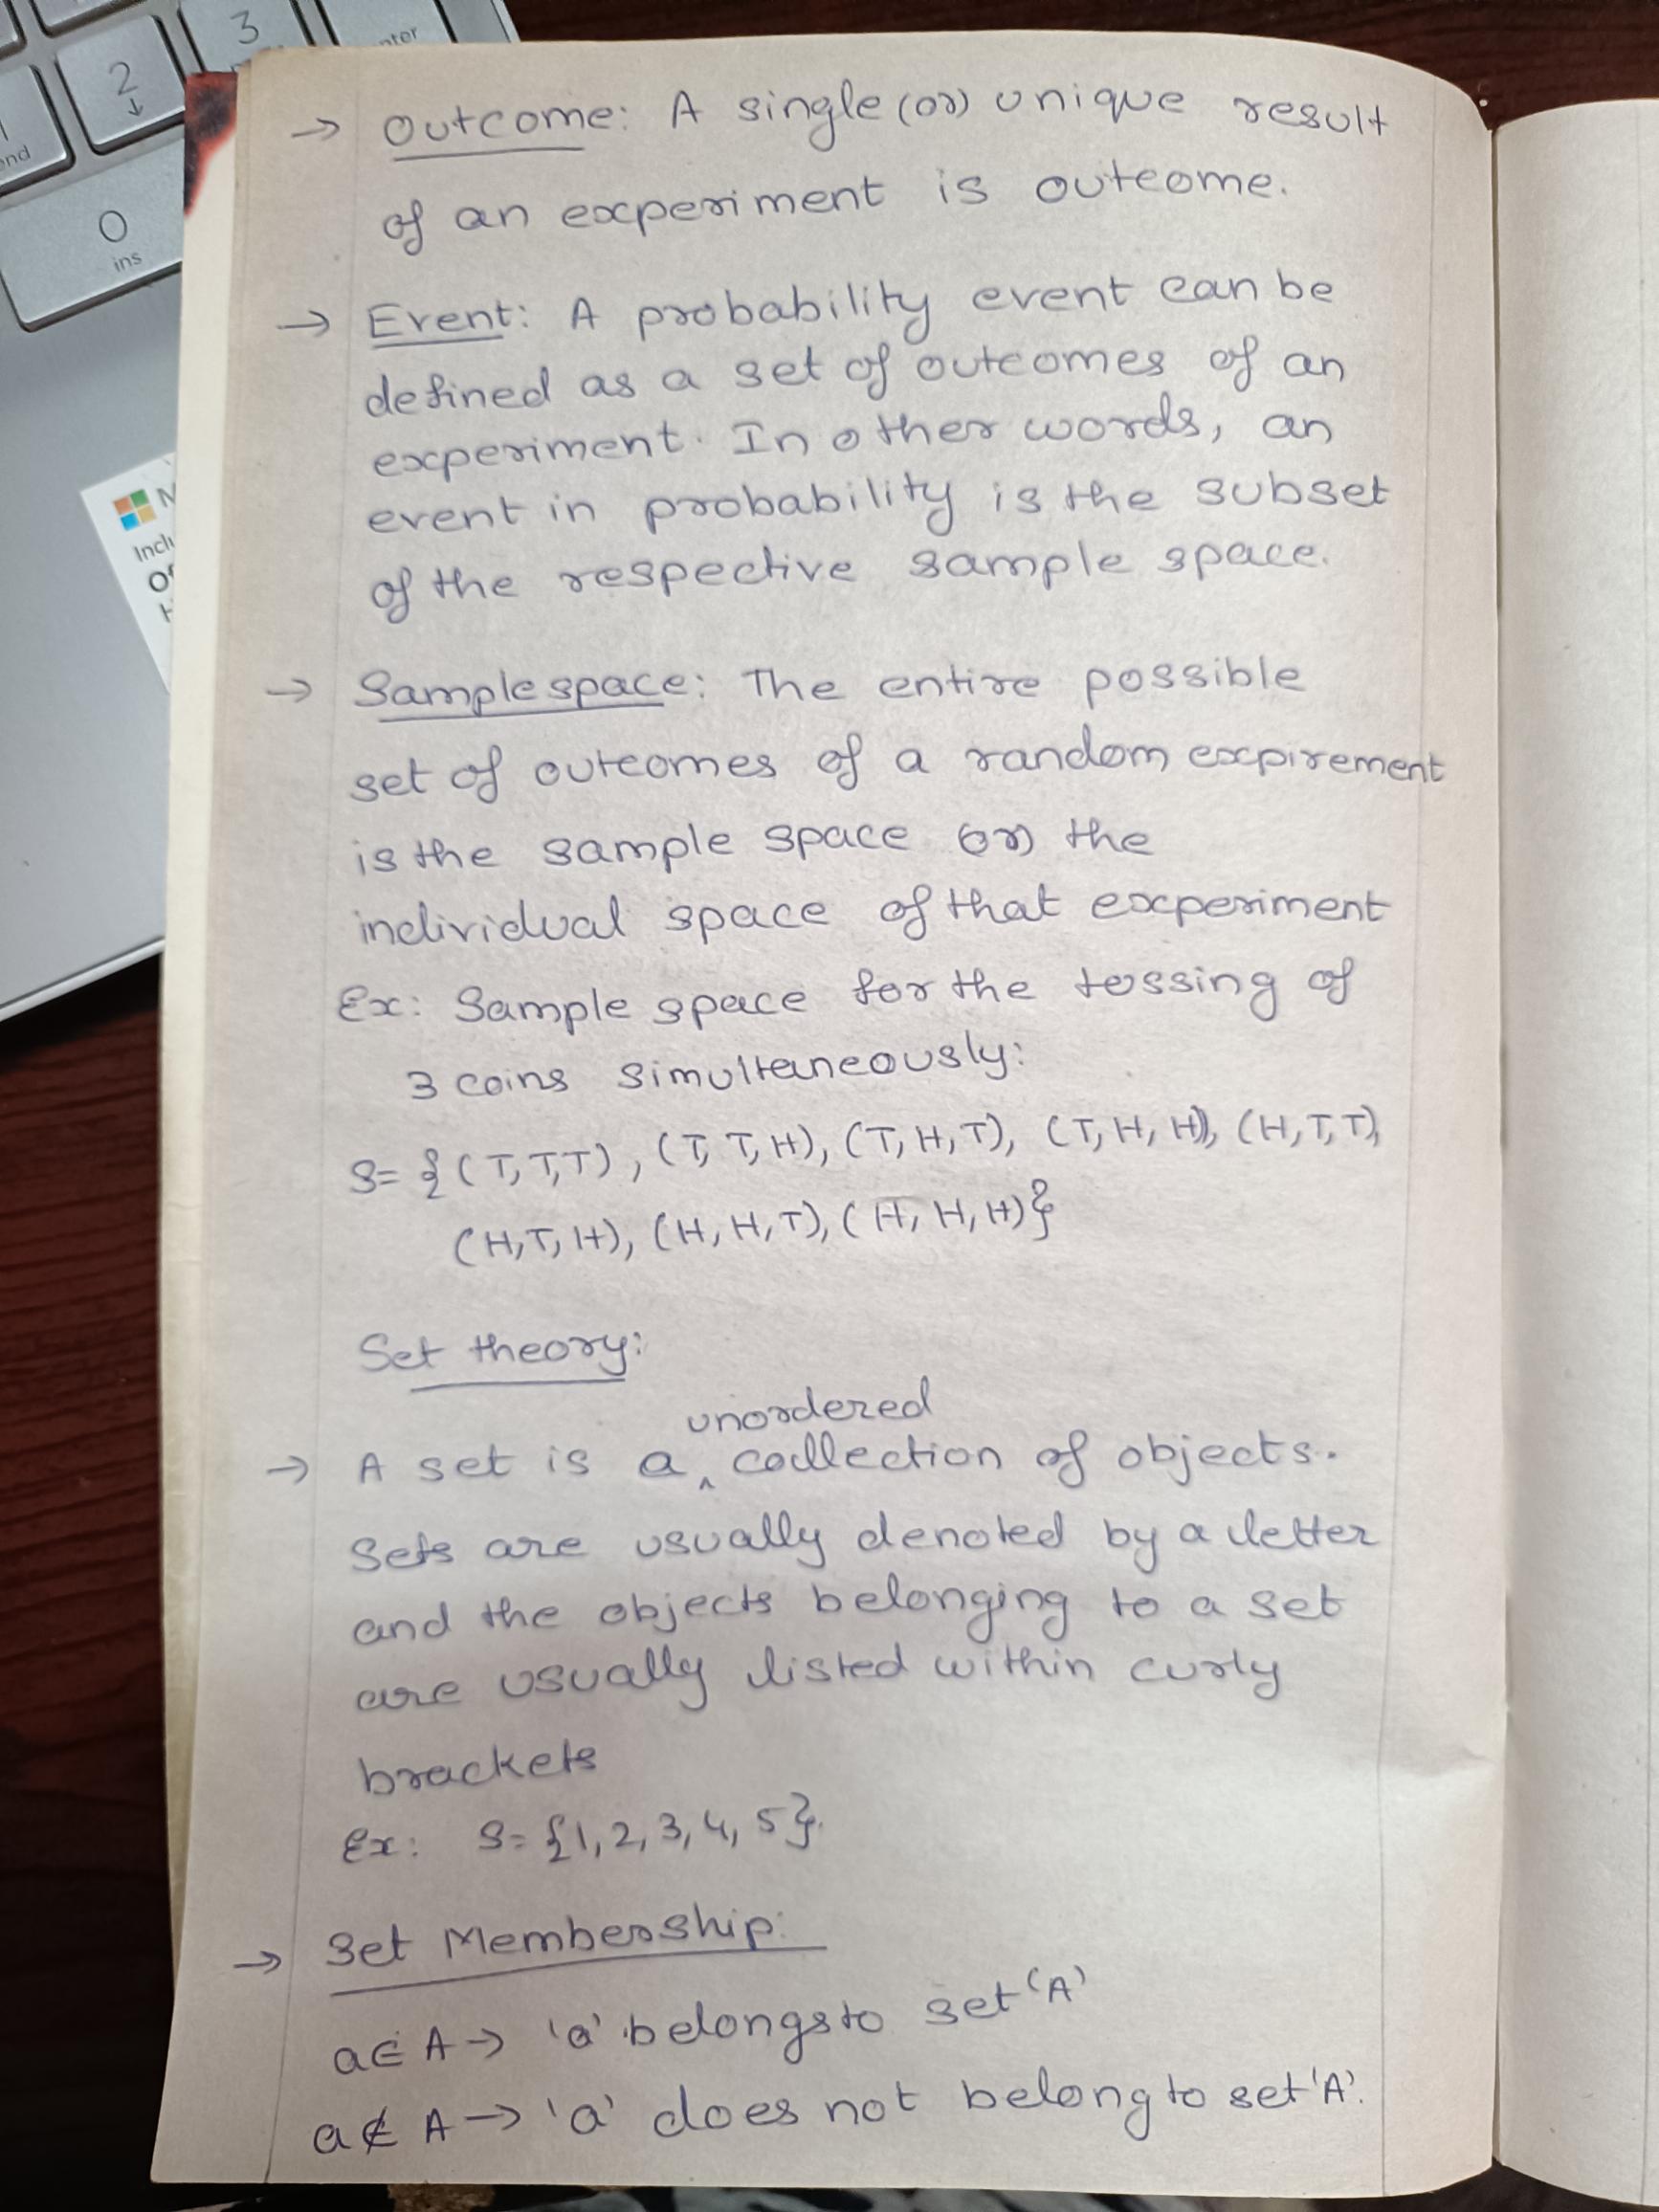 3
enter
2
↓
end
0
ins
Incl
→ Outcome: A single (or) unique result
of an experiment is outcome.
→ Event: A probability event can be
defined as a set of outcomes of an
experiment. In other words, an
event in probability is the subset
of the respective sample space.
→ Sample space: The entire possible
set of outcomes of a random expirement
is the sample space (or) the
individual space of that experiment
Ex: Sample space for the tossing of
3 coins simultaneously:
S= {(T,T,T), (T,T,H), (T,H,T), (T,H,H), (H,T,T),
(H,T,H), (H,H,T), (H,H,H)}
Set theory:
unordered
→ A set is a ^ collection of objects.
Sets are usually denoted by a letter
and the objects belonging to a set
are usually listed within curly
brackets
Ex: S= {1, 2, 3, 4, 5}.
→ Set Membership:
a∈ A → 'a' belongs to set 'A'
a∉ A → 'a' does not belong to set 'A'.